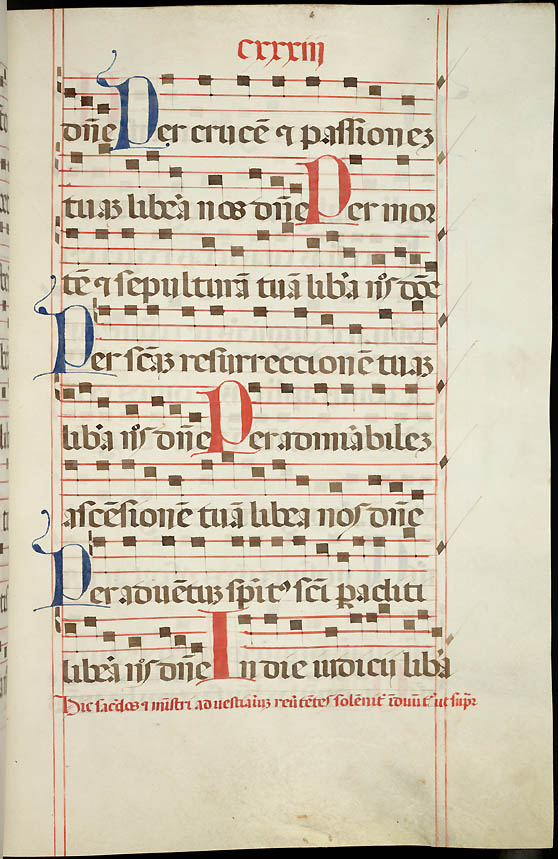 cxxxiii
dñe Per crucē ⁊ passionez
tuaz libera nos dñe Per mor
tē ⁊ sepulturā tuā liba nos dñe
Per scāz resurreccionē tuaz
liba nos dñe Per admiabilez
ascēsionē tuā libea nos dñe
Per aduētuz spirit⁹ scī pacliti
libea nos dñe In die iudicii liba
Hic sacdos ⁊ ministri ad uestiariuz solēnit ut supr